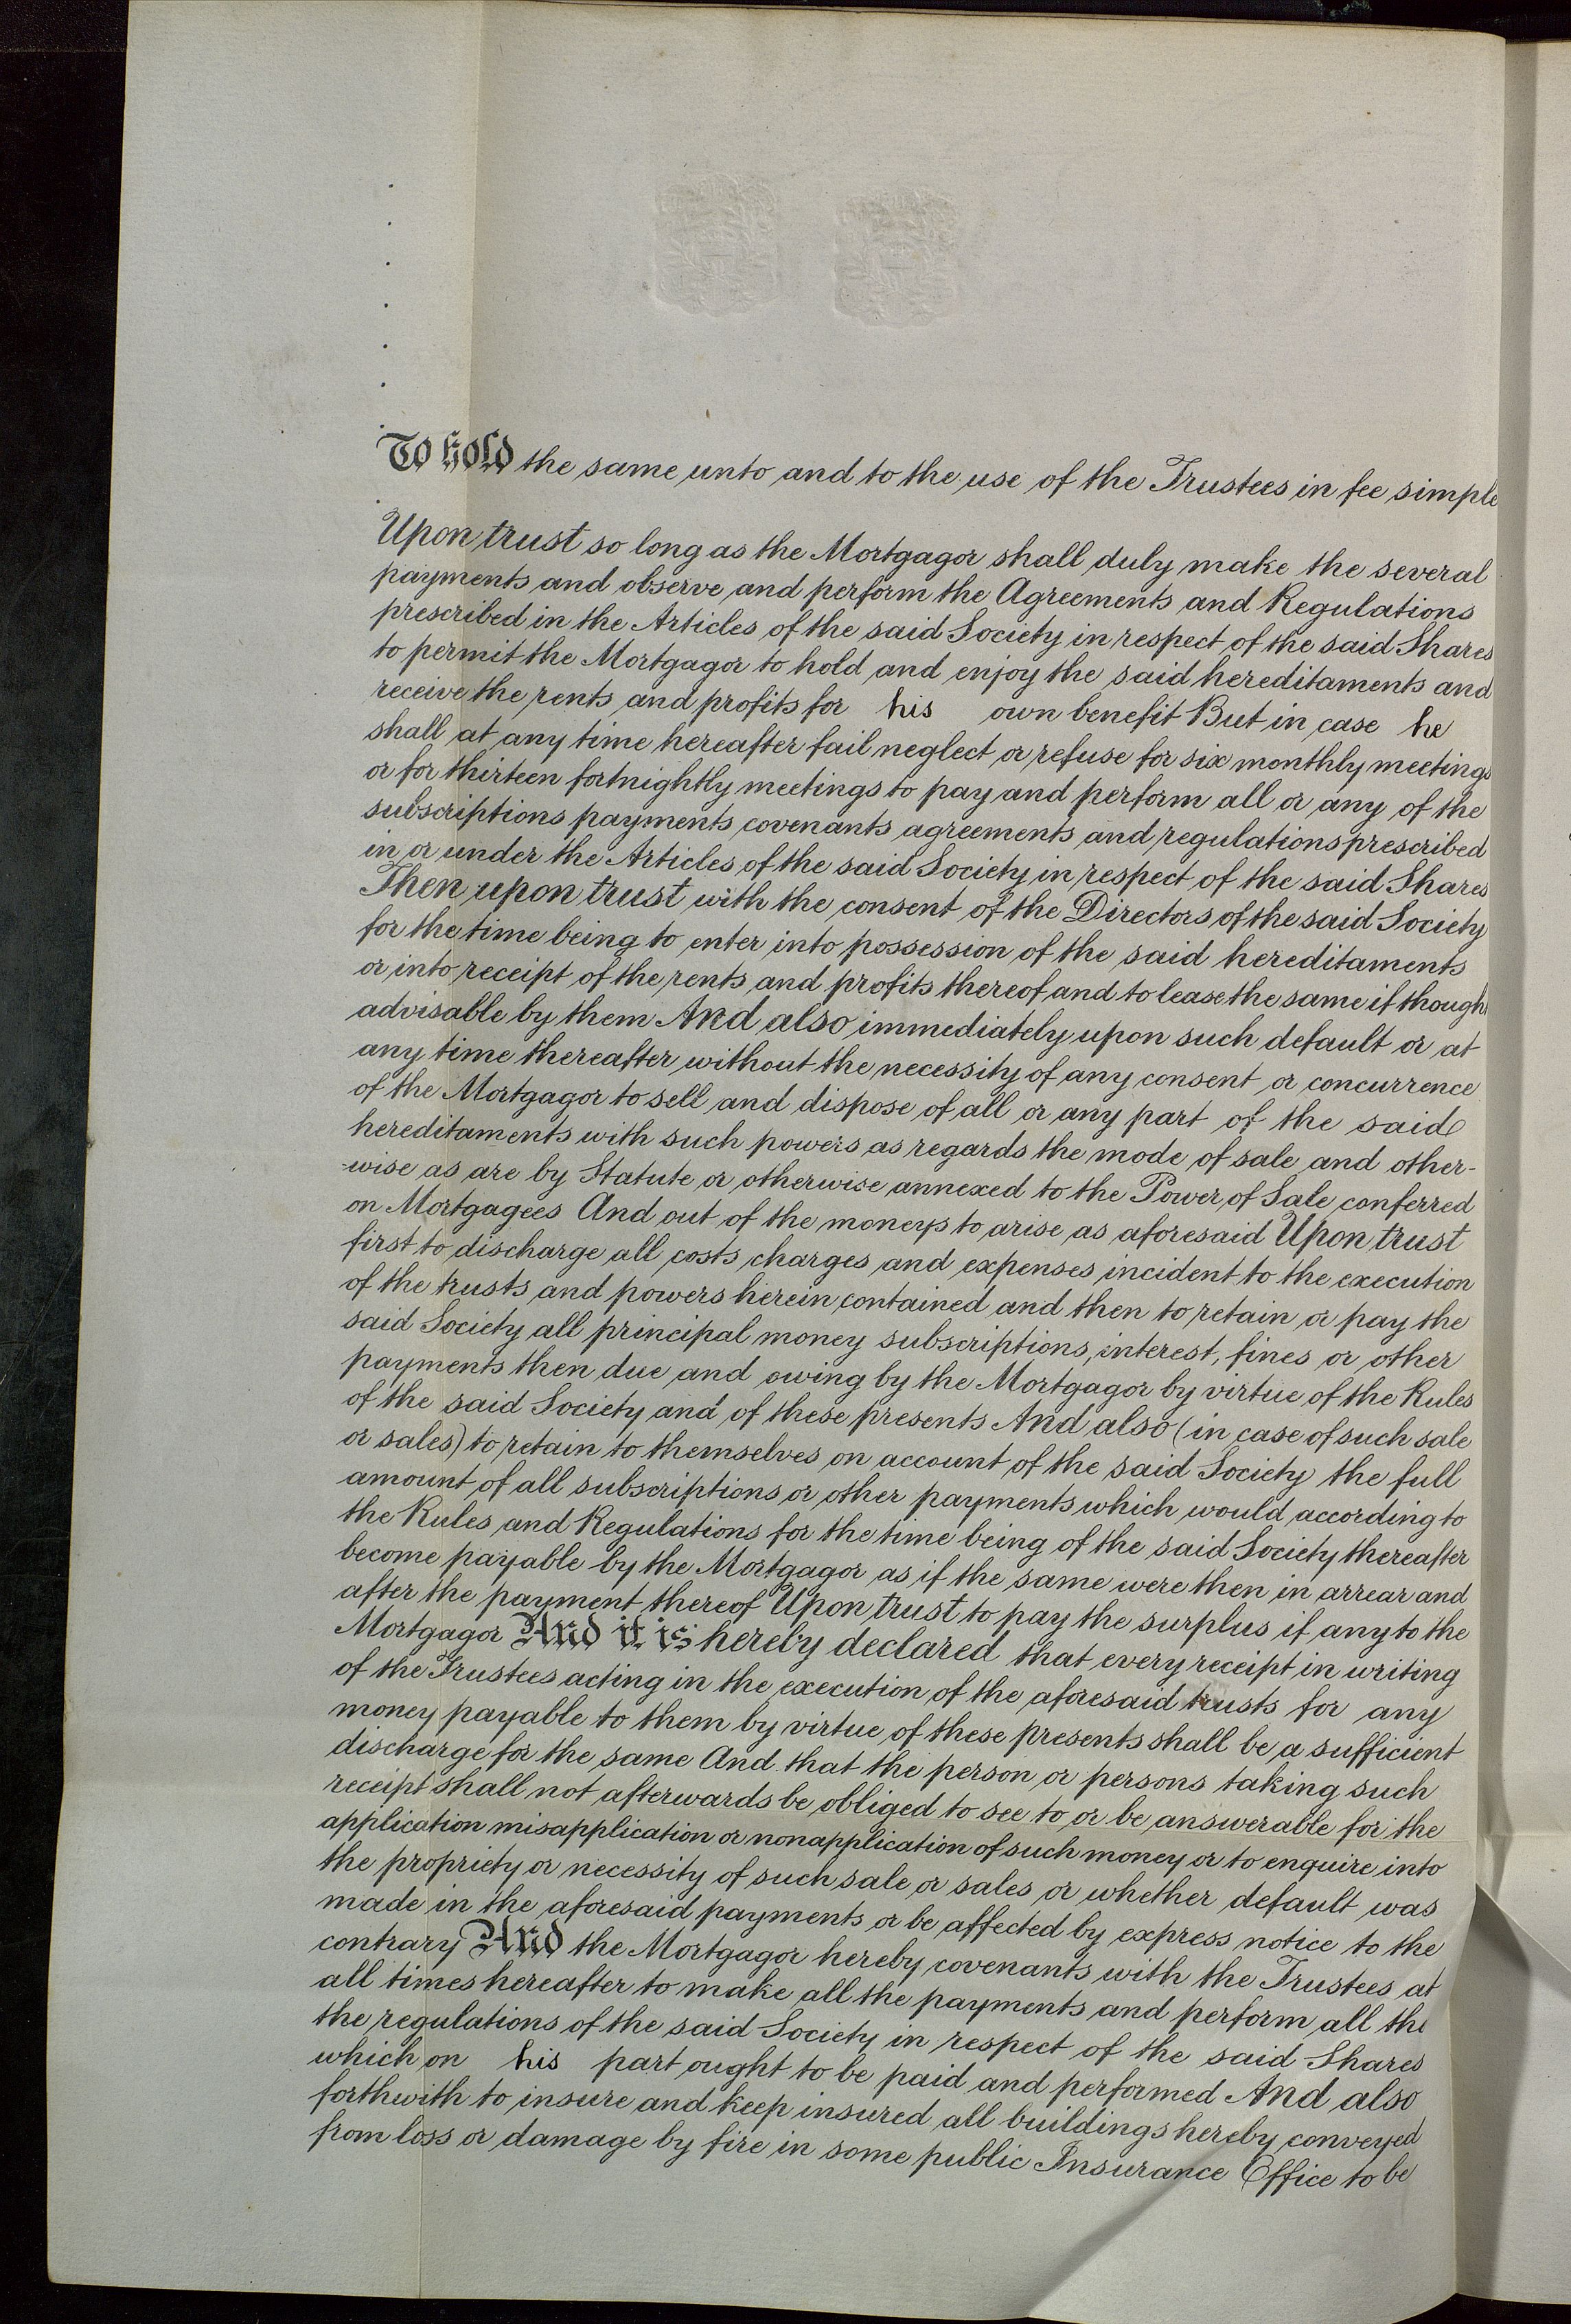 To hold the same unto and to the use of the Trustees in fee simple
Upon trust so long as the Mortgagor shall duly make the several
payments and observe and perform the Agreements and Regulations
prescribed in the Articles of the said Society in respect of the said Shares
to permit the Mortgagor to hold and enjoy the said hereditaments and
receive the rents and profits for his own benefit But in case he
shall at any time hereafter fail neglect or refuse for six monthly meetings
or for thirteen fortnightly meetings to pay and perform all or any of the
subscriptions payments covenants agreements and regulations prescribed
in or under the Articles of the said Society in respect of the said Shares
Then upon trust with the consent of the Directors of the said Society
for the time being to enter into possession of the said hereditaments
or into receipt of the rents and profits thereof and to lease the same if thought
advisable by them And also immediately upon such default or at
any time thereafter without the necessity of any consent or concurrence
of the Mortgagor to sell and dispose of all or any part of the said
hereditaments with such powers as regards the mode of sale and other-
-wise as are by Statute or otherwise annexed to the Power of Sale conferred
on Mortgagees And out of the moneys to arise as aforesaid Upon trust
first to discharge all costs charges and expenses incident to the execution
of the trusts and powers herein contained and then to retain or pay the
said Society all principal money subscriptions, interest, fines or other
payments then due and owing by the Mortgagor by virtue of the Rules
of the said Society and of these presents And also (in case of such sale
or sales) to retain to themselves on account of the said Society the full
amount of all subscriptions or other payments which would according to
the Rules and Regulations for the time being of the said Society thereafter
become payable by the Mortgagor as if the same were then in arrear and
after the payment thereof Upon trust to pay the surplus if any to the
Mortgagor And it is hereby declared that every receipt in writing
of the Trustees acting in the execution of the aforesaid trusts for any
money payable to them by virtue of these presents shall be a sufficient
discharge for the same And that the person or persons taking such
receipt shall not afterwards be obliged to see to or be answerable for the
application misapplication or nonapplication of such money or to enquire into
the propriety or necessity of such sale or sales or whether default was
made in the aforesaid payments or be affected by express notice to the
contrary And the Mortgagor hereby covenants with the Trustees at
all times hereafter to make all the payments and perform all the
the regulations of the said Society in respect of the said Shares
which on his part ought to be paid and performed And also
forthwith to insure and keep insured all buildings hereby conveyed
from loss or damage by fire in some public Insurance Office to be